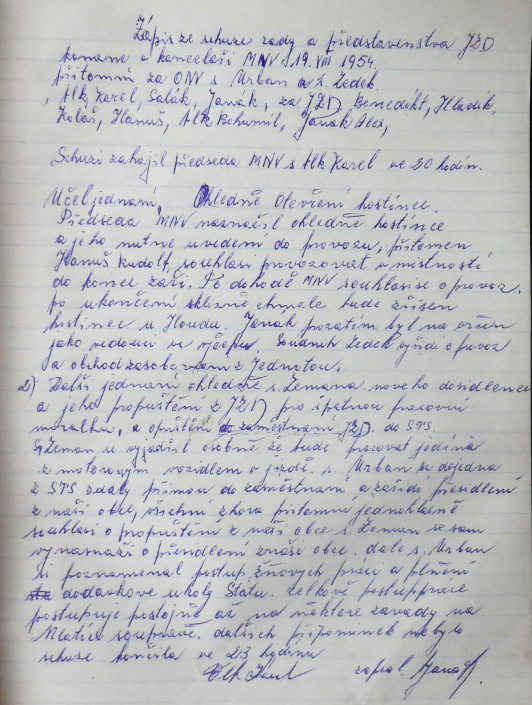 Zápis ze schuze rady a představenstva JZD
konane v kanceláři MNV 19. VIII 1954.
přítomni za ONV s. Urban a s. Zedek.
, Vlk Karel, Salák, Janák, za JZD, Benedikt, Hladík,
Kolář, Hanuš, Vlk Bohumil, Janák Alex,
Schuzi zahajil předseda MNV s Vlk Karel ve 20 hodin.
Učel jednani, Ohledně Otevření hostince.
Předseda MNV naznačil ohledně hostince
a jeho nutne uvedeni do provozu, přitomen
Hanuš Rudolf, souhlasi provozovat v mistnosti
do konce zaři. Po dohodě MNV souhlasise o provoz.
po ukončeni sklizně chmele bude zřízen
hostinec u Houdu. Janák pozatim byl na
jako vedouci ve výčepu. Soudruh Zedek vyřidi o provoz
a obchod zasobovanim z Jednotou.
2) Další jednani ohledně s. Zemana noveho dosidlence
a jeho propuštění z JZD pro špatnou pracovni
moralku, a opuštění zaměstnani JZD do STS.
S Zeman se vyjádřil osobně že bude pracovat jedině
z motorovym vozidlem v jizdě. s. Urban se dojedna
z STS zdaly přimou do zaměstnani a zařidi přesidleni
z naši obce, všichni zhora přitomni jednohlasně
souhlasi o propuštění z naši obce s. Zeman se sam
vynasnaži o přesidleni znaši obce. dale s. Urban
si poznamenal postup, žňovych praci a plnění
dodavkove ukoly Statu. celkově postup prace
postupuje postojně až na některe zavady na
Mlatici soupravě. dalšich připominek nebylo
schuze končila ve 23 hodinu
Vlk Karel zapsal Janák